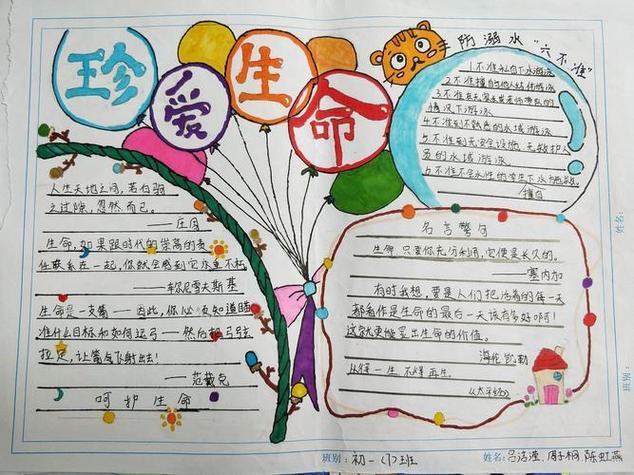 珍爱生命
防溺水"六不准"
1.不准私自下水游泳
2.不准擅自与他人结伴游泳
3.不准在无家长或老师带队的
情况下游泳
4.不准到不熟悉的水域游泳
5.不准到无安全设施、无救护人
员的水域游泳
6.不准不会水性的学生下水施救
擅自
人生天地之间,若白驹
之过隙,忽然而已。
——庄周
生命,如果跟时代的崇高的责
任联系在一起,你就会感到它永垂不朽
——车尔尼雪夫斯基
生命是一支箭——因此,你必须知道瞄
准什么目标和如何运弓——然后把弓弦
拉足,让箭飞射出去!
——范戴克
呵护生命
名言警句
生命,只要你充分利用,它便是长久的。
——塞内加
有时我想,要是人们把活着的每一天
都看作是生命的最后一天该有多好啊!
这就更能显出生命的价值。
海伦凯勒
人得一生,不得再生
《太平经》
姓名:
班别:
班别: 初一(1)班
姓名:吕洁滢、周子桐 陈虹燕